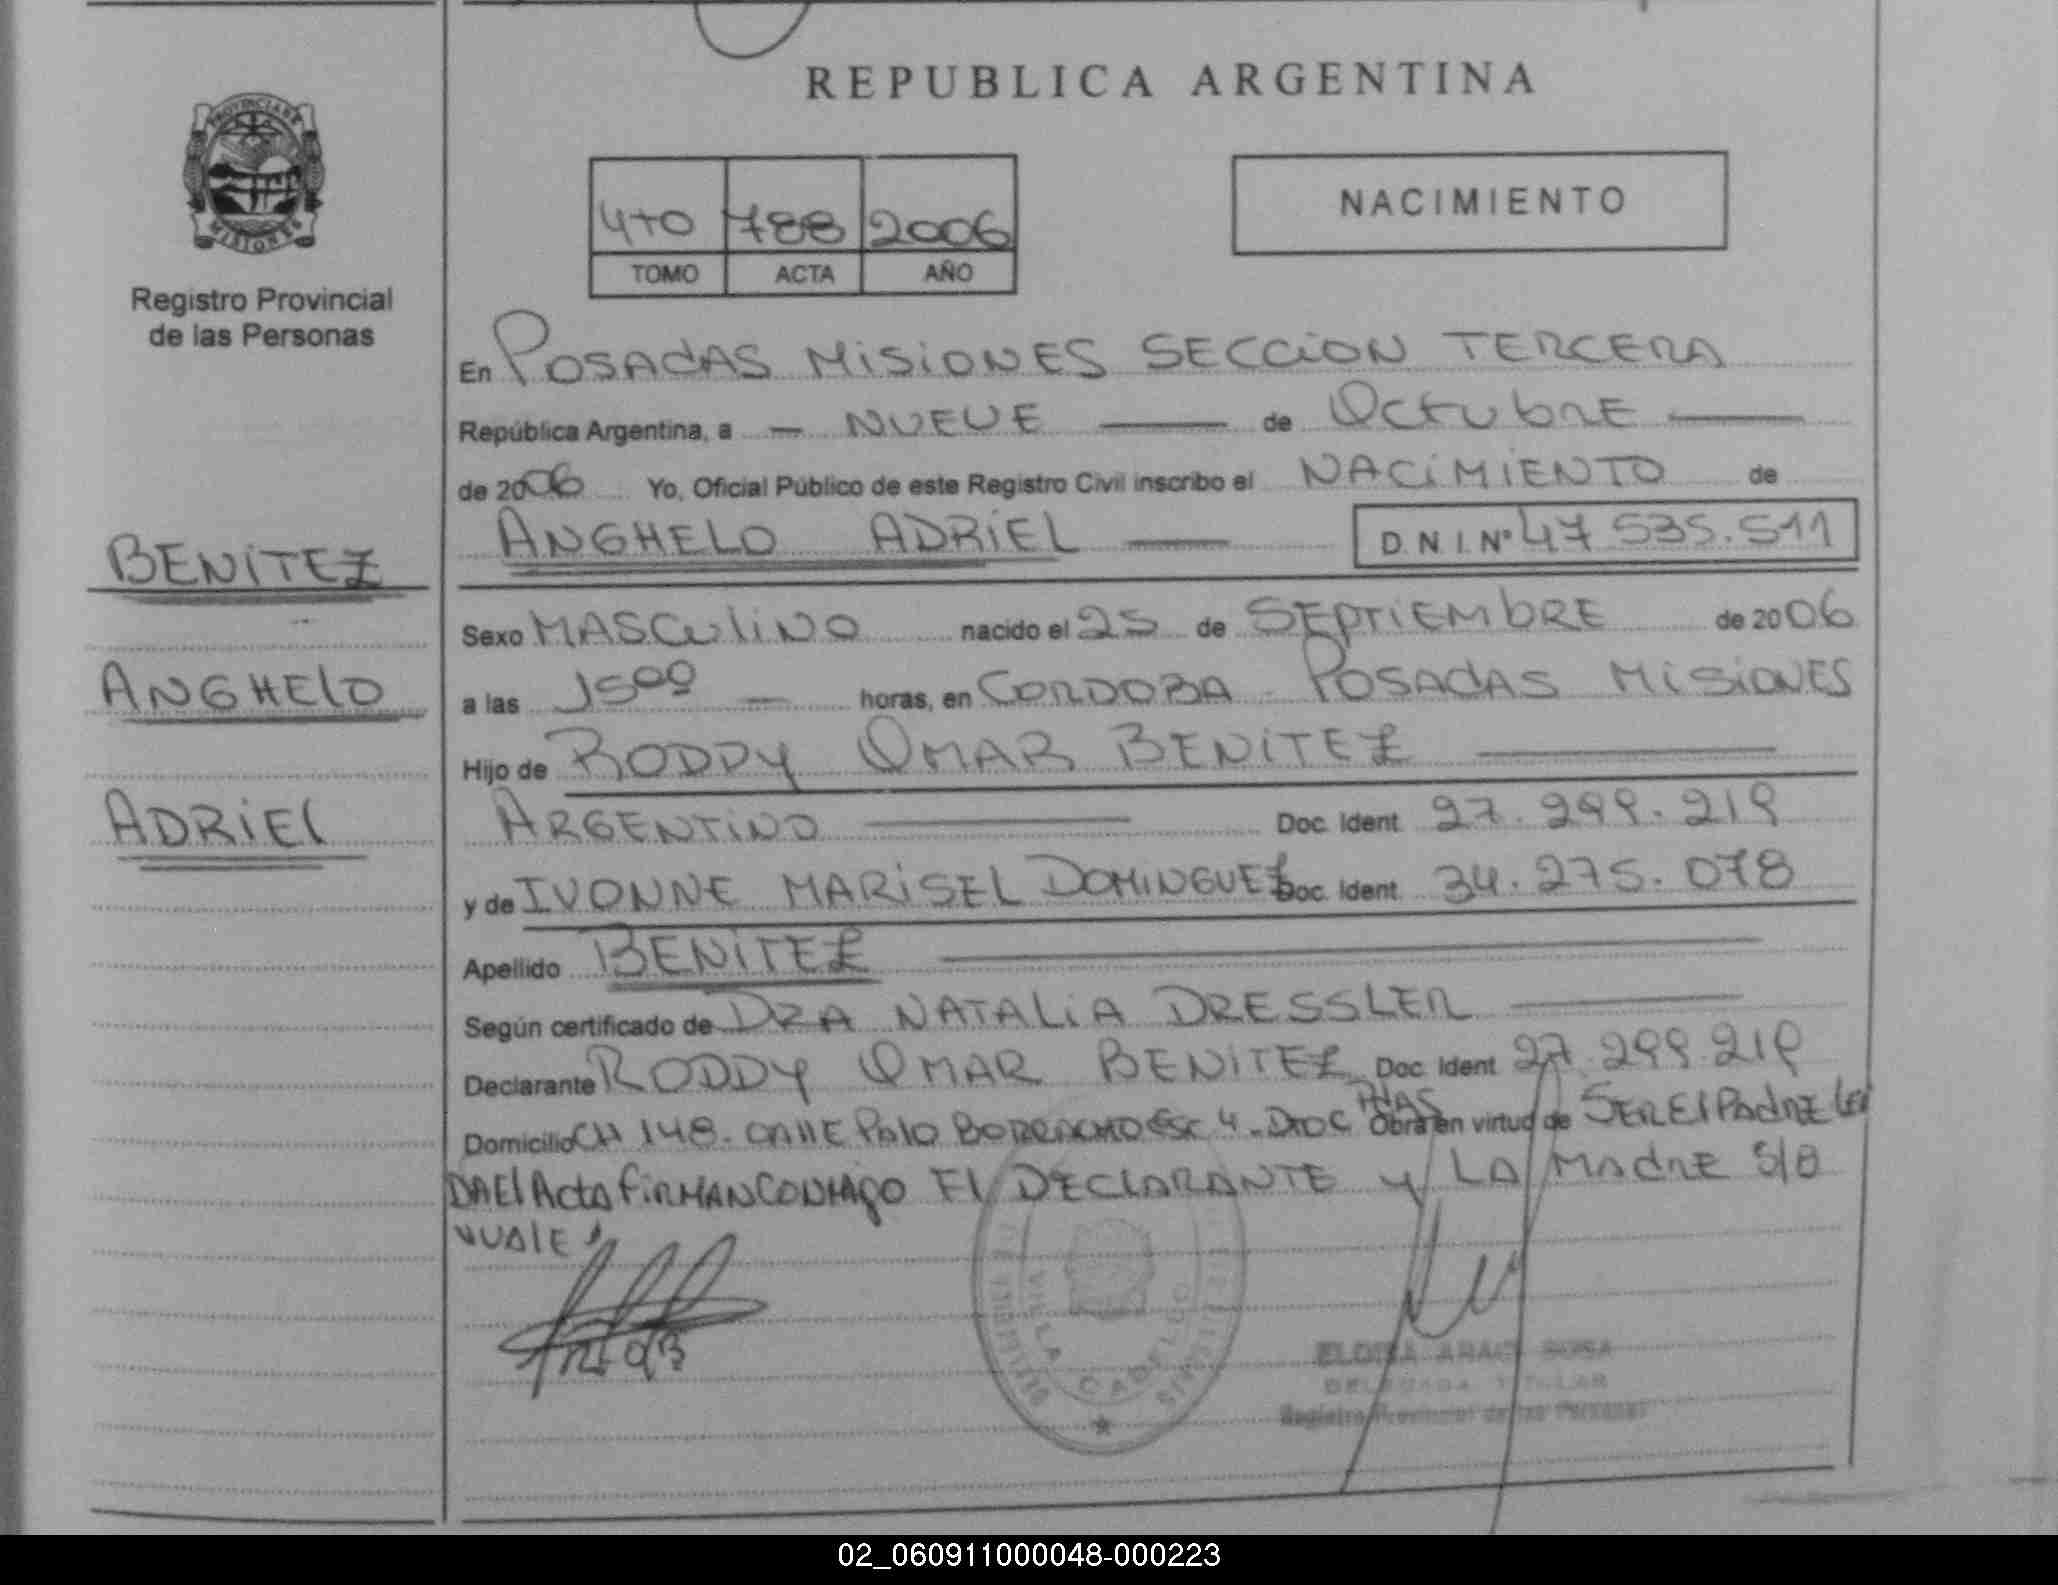 REPUBLICA ARGENTINA
PROVINCIA DE
MISIONES
Registro Provincial
de las Personas
4TO 788 2006
TOMO ACTA AÑO
NACIMIENTO
En POSADAS MISIONES SECCION TERCERA
República Argentina, a — NUEVE — de Octubre —
de 2006 Yo, Oficial Público de este Registro Civil inscribo el NACIMIENTO de
ANGHELO ADRIEL — D.N.I.Nº 47 535.511
BENITEZ
ANGHELO
ADRIEL
Sexo MASCULINO nacido el 25 de SEPTIEMBRE de 2006
a las 15:00 — horas, en CORDOBA - POSADAS MISIONES
Hijo de RODDY OMAR BENITEZ —
ARGENTINO — Doc. Ident. 27.299.219
y de IVONNE MARISEL DOMINGUEZ Doc. Ident. 34.275.078
Apellido BENITEZ —
Según certificado de DRA NATALIA DRESSLER —
Declarante RODDY OMAR BENITEZ Doc. Ident. 27.299.219
Domicilio CH 148. CALLE PALO BORRACHO ESC 4. DTO C PDAS Obra en virtud de SER EL PADRE LEI
DA EL Acta FIRMAN CONMIGO EL DECLARANTE y LA MADRE S/B
"VALE"
VILLA CABELLO
ELOISA ARACI SOSA
DELEGADA TITULAR
Registro Provincial de las Personas
02_060911000048-000223